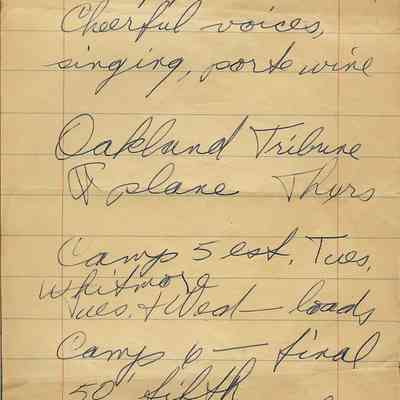 Cheerful voices,
singing, porte wine
Oakland Tribune
plane Thurs
Camp 5 est. Tues,
Whitmore
Tues. + Wed — loads
Camp 6 — final
50' fifth